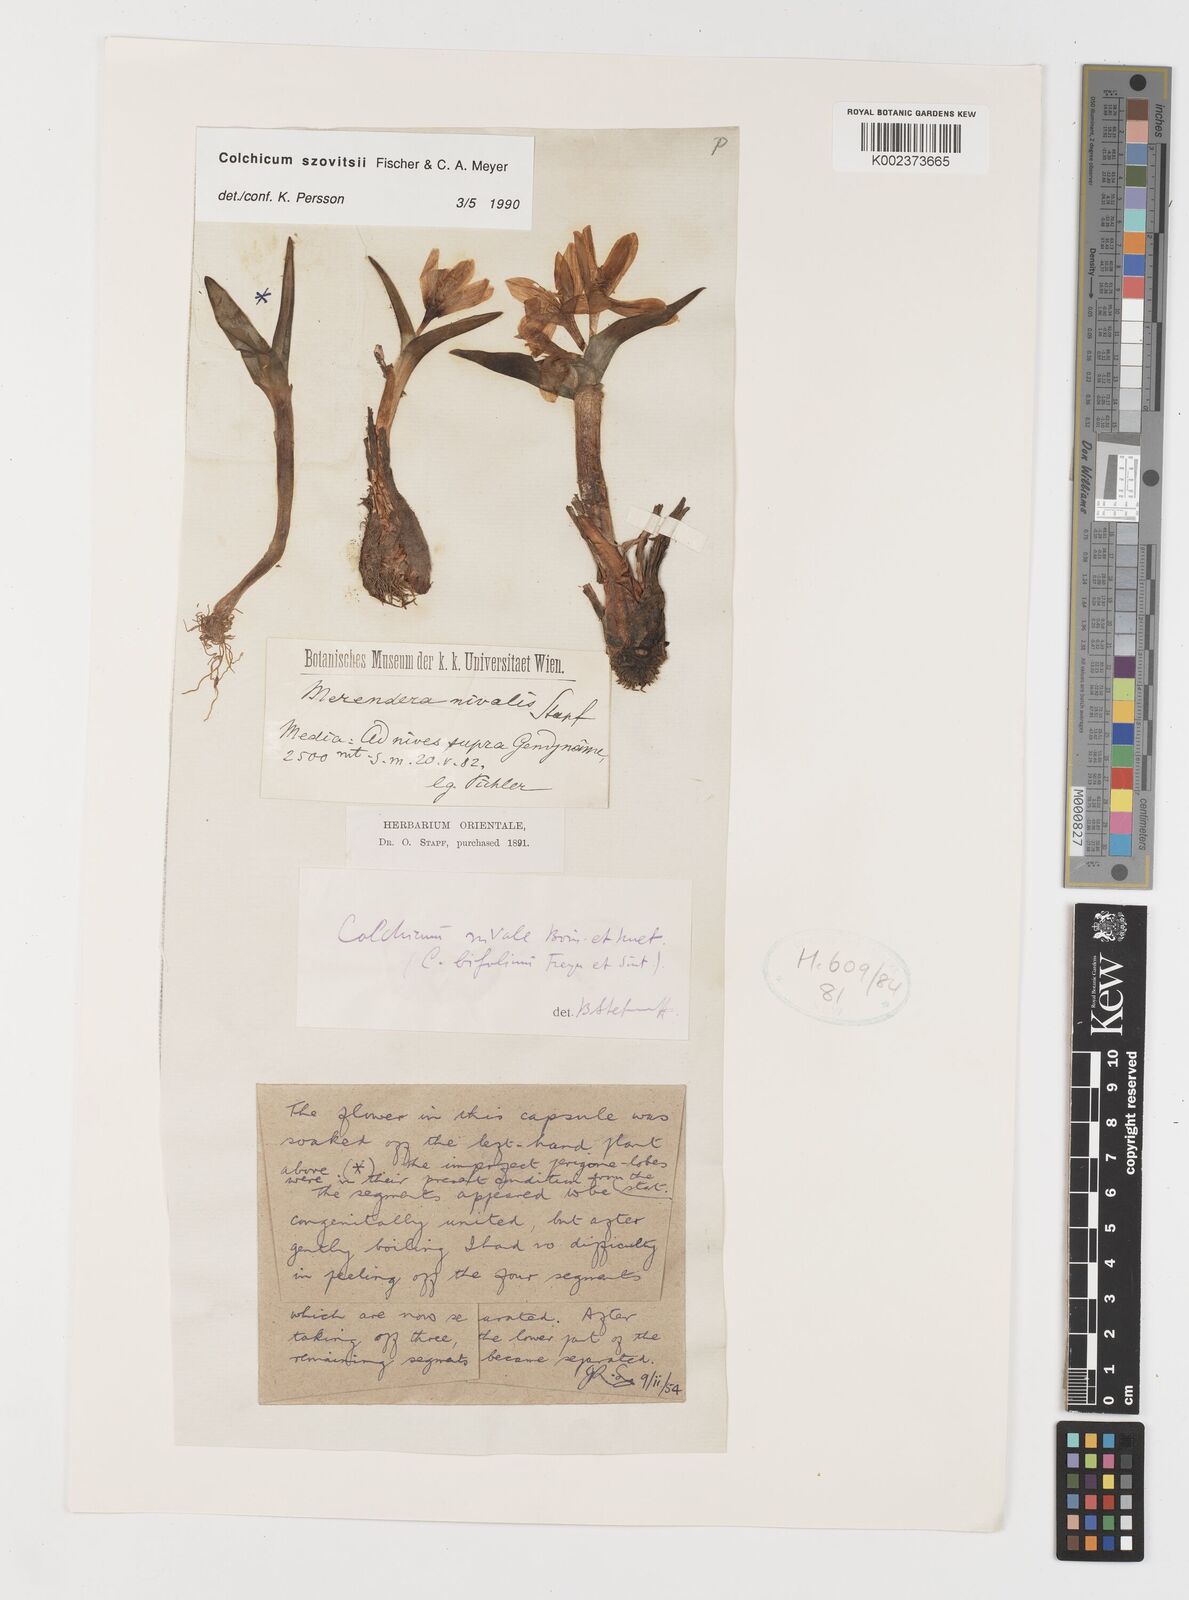 ROYAL BOTANIC GARDENS KEW
K002373665
Colchicum szovitsii Fischer & C. A. Meyer
det./conf. K. Persson 3/5 1990
P
*
Botanisches Museum der k. k. Universitaet Wien.
Merendera nivalis Stapf
Media: Ad nives supra Gendjname,
2500 mt. s. m. 20.V.82.
lg. Pichler
HERBARIUM ORIENTALE,
DR. O. STAPF, purchased 1891.
Colchicum nivale Bois. et Huet.
(C. bifolium Freyn et Sint).
det. B Stefanoff.
H. 609/84
81
The flower in this capsule was
soaked off the left-hand plant
above (*), the imperfect perigone-lobes
were in their present condition from the
The segments appeared to be start.
congenitally united, but after
gently boiling I had no difficulty
in peeling off the four segments
which are now separated. After
taking off three, the lower part of the
remaining segments became separated.
9/ii/54
inches
Density
Don Williams
centimeters
M000827
Kew
Royal Botanic Gardens
copyright reserved
0 1 2 3 4 5 6 7 8 9 10
cm